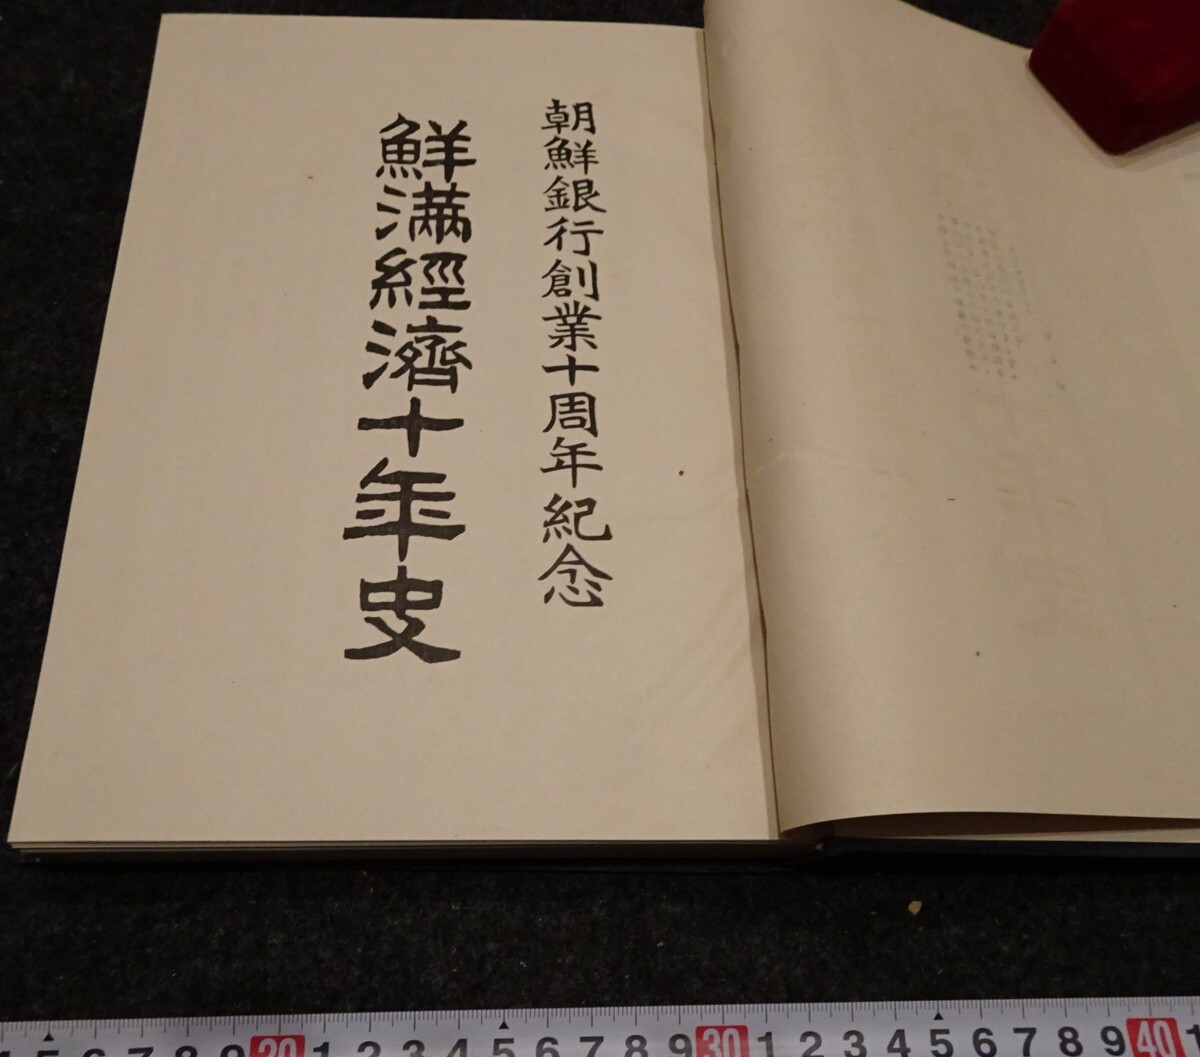 朝鮮銀行創業十周年紀念
鮮満經濟十年史
5 6 7 8 9 20 1 2 3 4 5 6 7 8 9 30 1 2 3 4 5 6 7 8 9 40 1